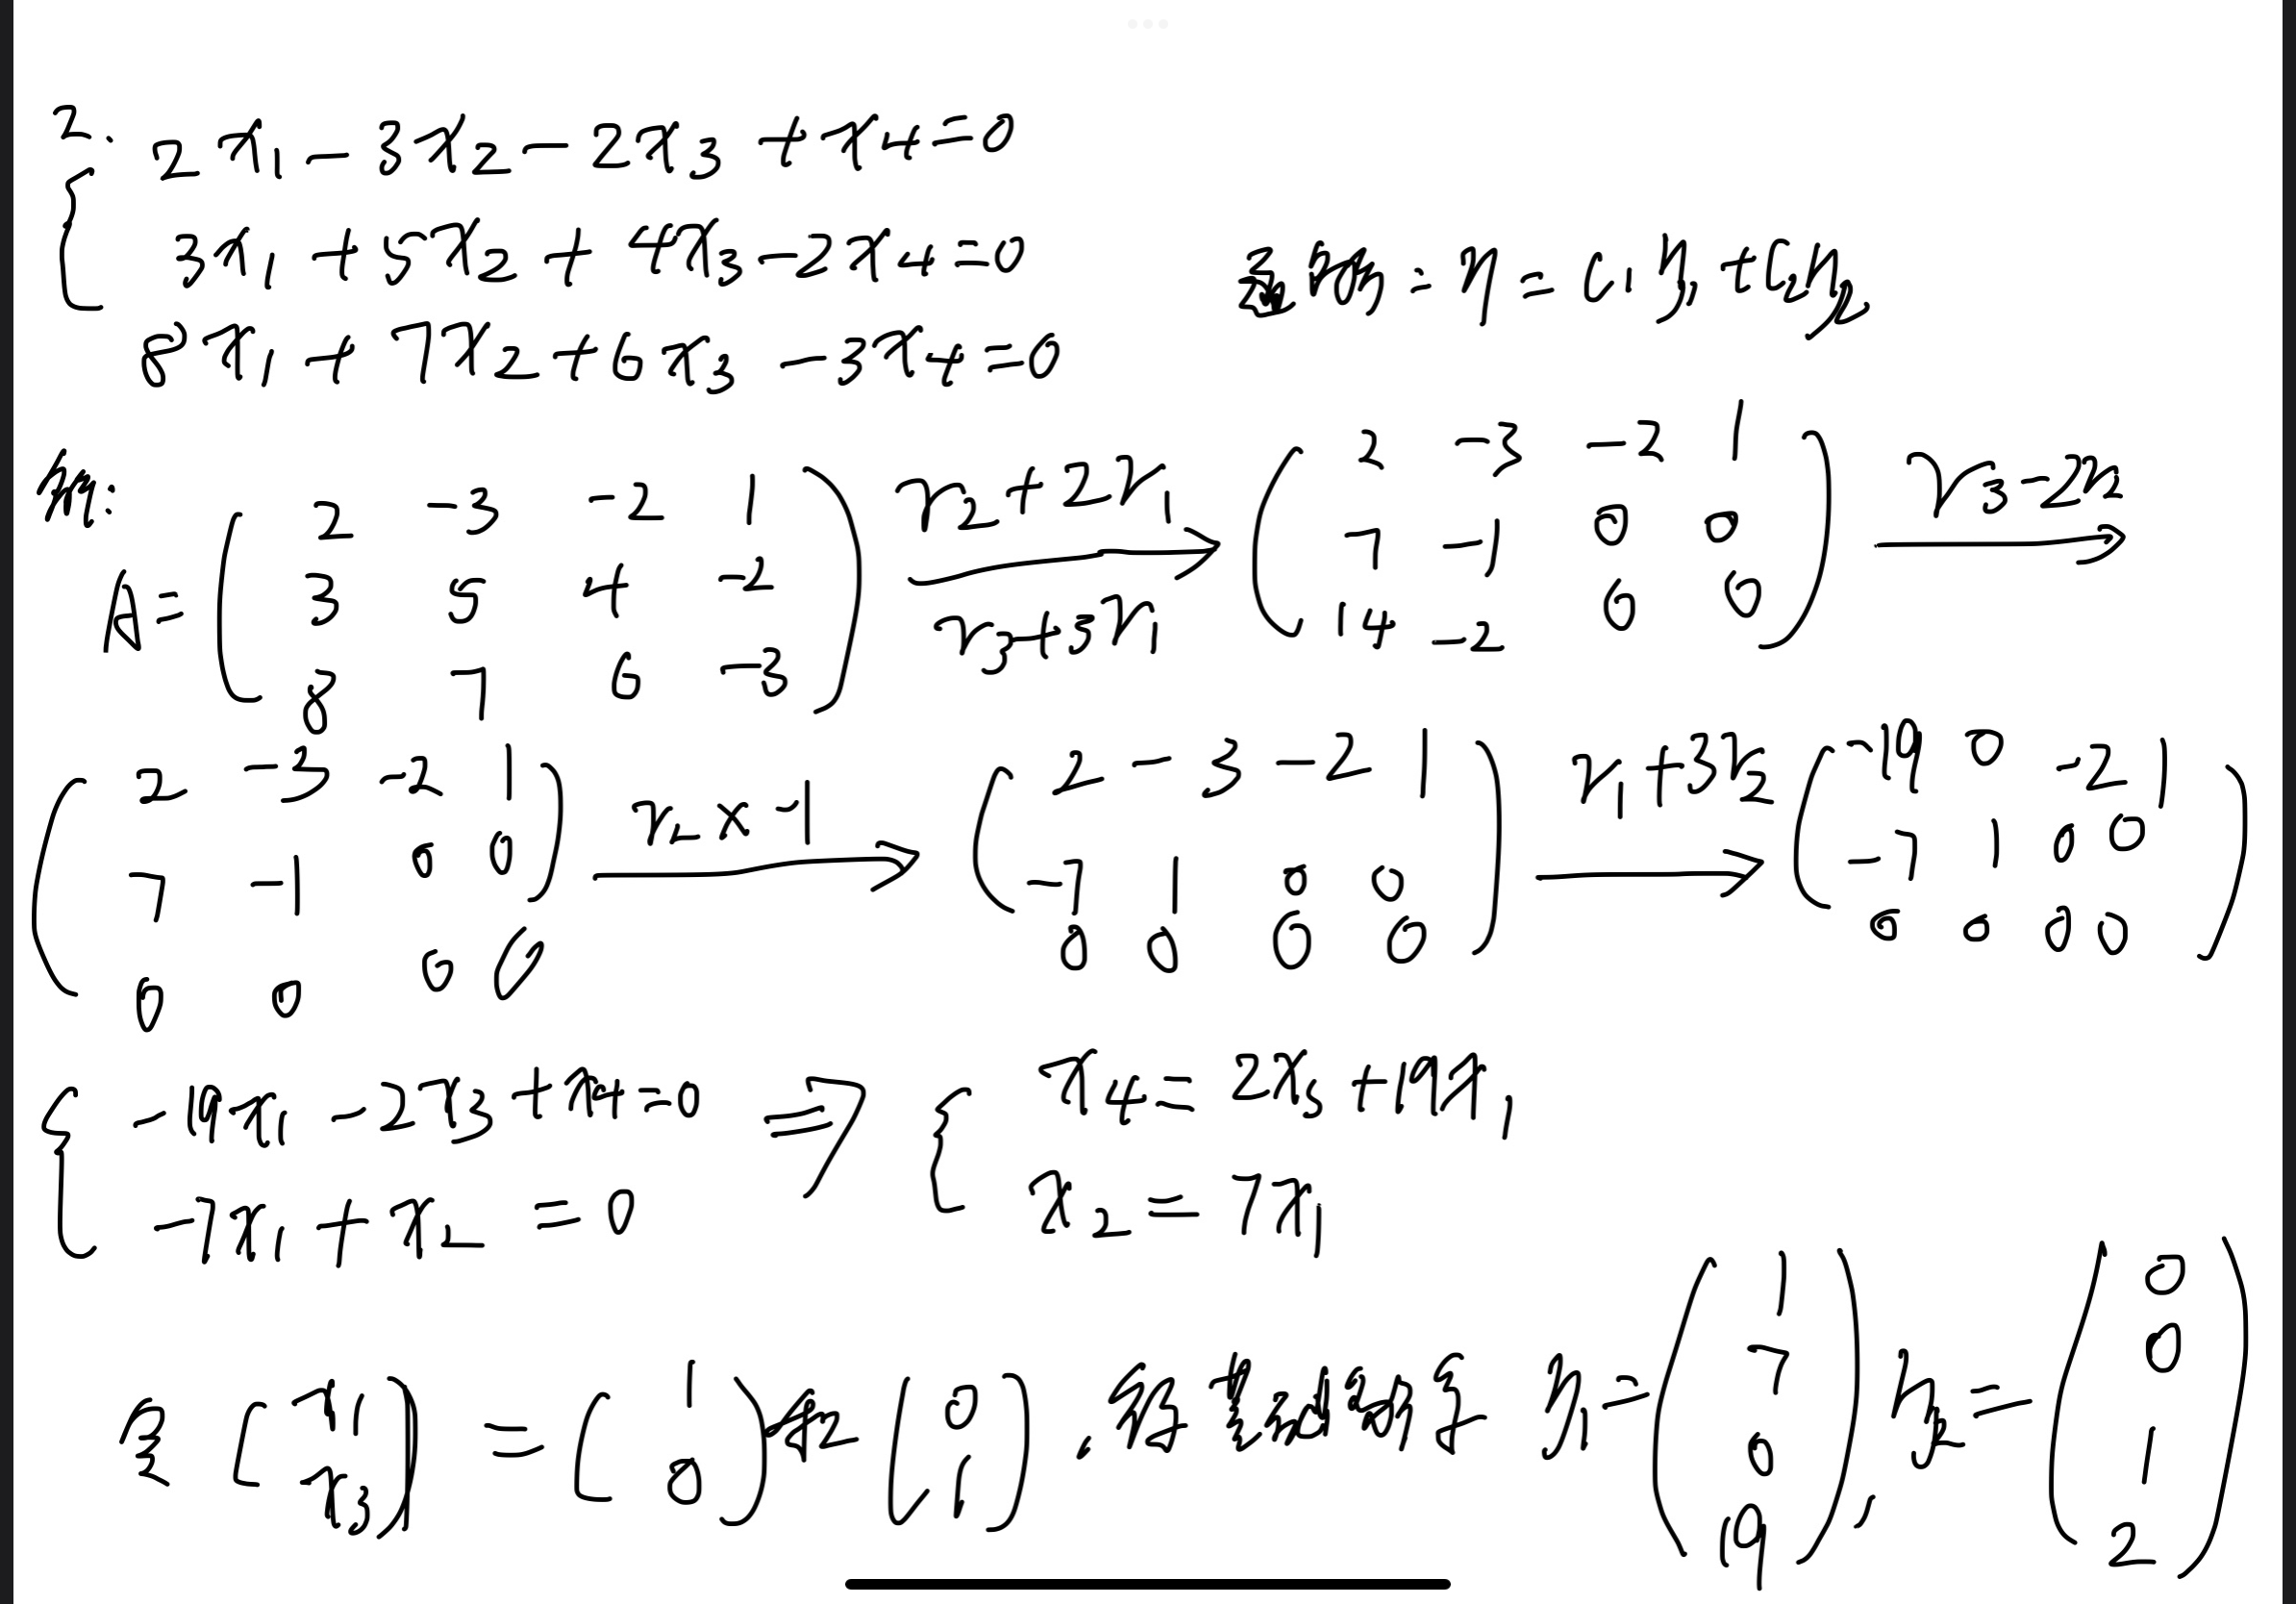 2.
2x₁ - 3x₂ - 2x₃ + x₄ = 0
3x₁ + 5x₂ + 4x₃ - 2x₄ = 0
8x₁ + 7x₂ + 6x₃ - 3x₄ = 0
η = c₁η₁ + c₂η₂
解:
A = ( 2 -3 -2 1 ; 3 5 4 -2 ; 8 7 6 -3 ) r₂+2r₁ r₃+3r₁ → ( 2 -3 -2 1 ; 7 -1 0 0 ; 14 -2 0 0 ) r₃-2r₂ →
( 2 -3 -2 1 ; 7 -1 0 0 ; 0 0 0 0 ) r₂ × -1 → ( 2 -3 -2 1 ; -7 1 0 0 ; 0 0 0 0 ) r₁+3r₂ → ( -19 0 -2 1 ; -7 1 0 0 ; 0 0 0 0 )
{ -19x₁ - 2x₃ + x₄ = 0 ⇒ { x₄ = 2x₃ + 19x₁
-7x₁ + x₂ = 0 x₂ = 7x₁
令 ( x₁ ; x₃ ) = ( 1 ; 0 ) 和 ( 0 ; 1 ), η₁ = ( 1 ; 7 ; 0 ; 19 ), η₂ = ( 0 ; 0 ; 1 ; 2 )